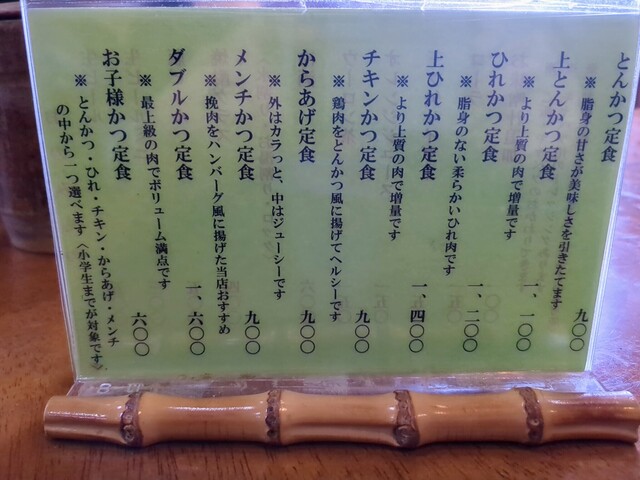 とんかつ定食
※ 脂身の甘さが美味しさを引きたてます
九〇〇
上とんかつ定食
※ より上質の肉で増量です
一、一〇〇
ひれかつ定食
※ 脂身のない柔らかいひれ肉です
一、二〇〇
上ひれかつ定食
※ より上質の肉で増量です
一、四〇〇
チキンかつ定食
※ 鶏肉をとんかつ風に揚げてヘルシーです
九〇〇
からあげ定食
※ 外はカラっと、中はジューシーです
九〇〇
メンチかつ定食
※ 挽肉をハンバーグ風に揚げた当店おすすめ
九〇〇
ダブルかつ定食
※ 最上級の肉でボリューム満点です
一、六〇〇
お子様かつ定食
※ とんかつ・ひれ・チキン・からあげ・メンチ
の中から一つ選べます〈小学生までが対象です〉
六〇〇